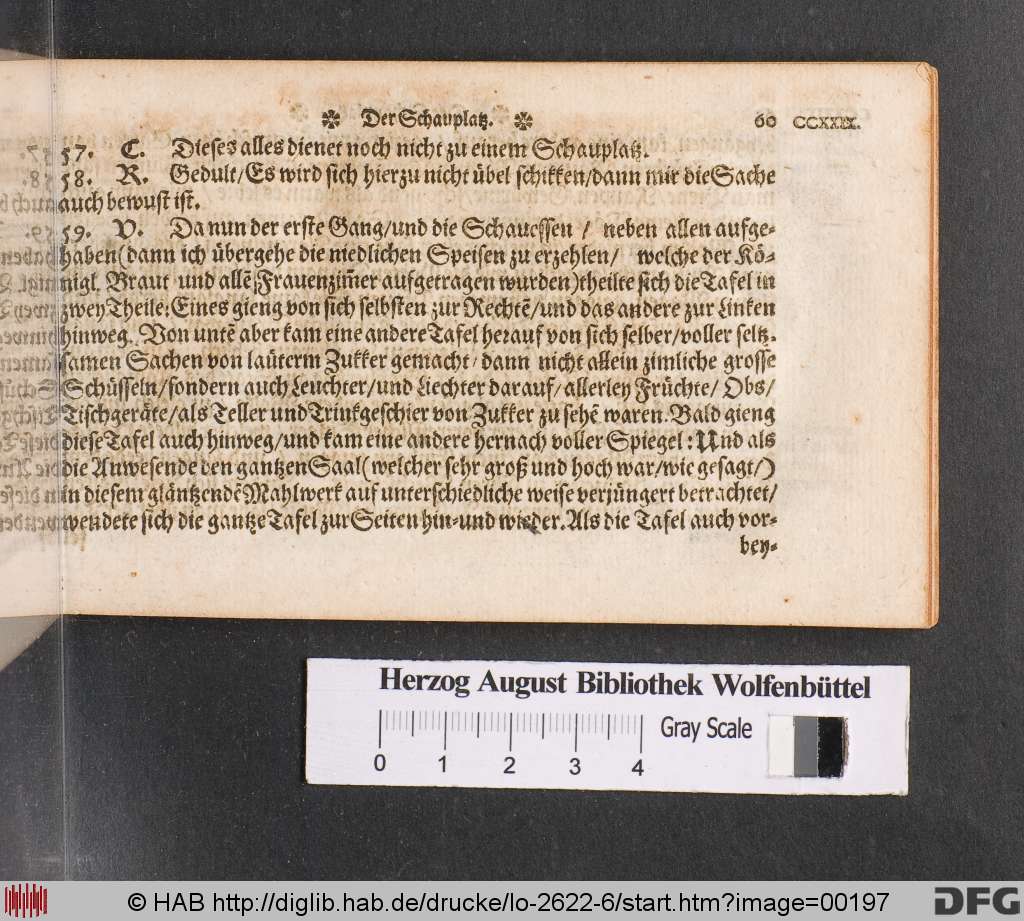 ✼ Der Schauplatz. ✼ 60 CCXXIX.
57. C. Dieses alles dienet noch nicht zu einem Schauplatz.
58. R. Gedult/Es wird sich hierzu nicht übel schikken/dann mir die Sache
auch bewust ist.
59. V. Da nun der erste Gang/und die Schauessen / neben allen aufge-
haben (dann ich übergehe die niedlichen Speisen zu erzehlen/ welche der Kö-
nigl. Braut und allẽ Frauenzim̃er aufgetragen wurden) theilte sich die Tafel in
zwey Theile: Eines gieng von sich selbsten zur Rechtẽ/und das andere zur Linken
hinweg. Von untẽ aber kam eine andere Tafel herauf von sich selber/voller seltz-
samen Sachen von lauterm Zukker gemacht/dann nicht allein zimliche grosse
Schüsseln/sondern auch Leuchter/und Liechter darauf/allerley Früchte/ Obs/
Tischgeräte/als Teller und Trinkgeschier von Zukker zu sehẽ waren. Bald gieng
diese Tafel auch hinweg/und kam eine andere hernach voller Spiegel: Und als
die Anwesende den gantzen Saal (welcher sehr groß und hoch war/wie gesagt/)
in diesem gläntzendẽ Mahlwerk auf unterschiedliche weise verjüngert betrachtet/
wendete sich die gantze Tafel zur Seiten hin-und wieder. Als die Tafel auch vor-
bey-
Herzog August Bibliothek Wolfenbüttel
0 1 2 3 4 Gray Scale
© HAB http://diglib.hab.de/drucke/lo-2622-6/start.htm?image=00197 DFG